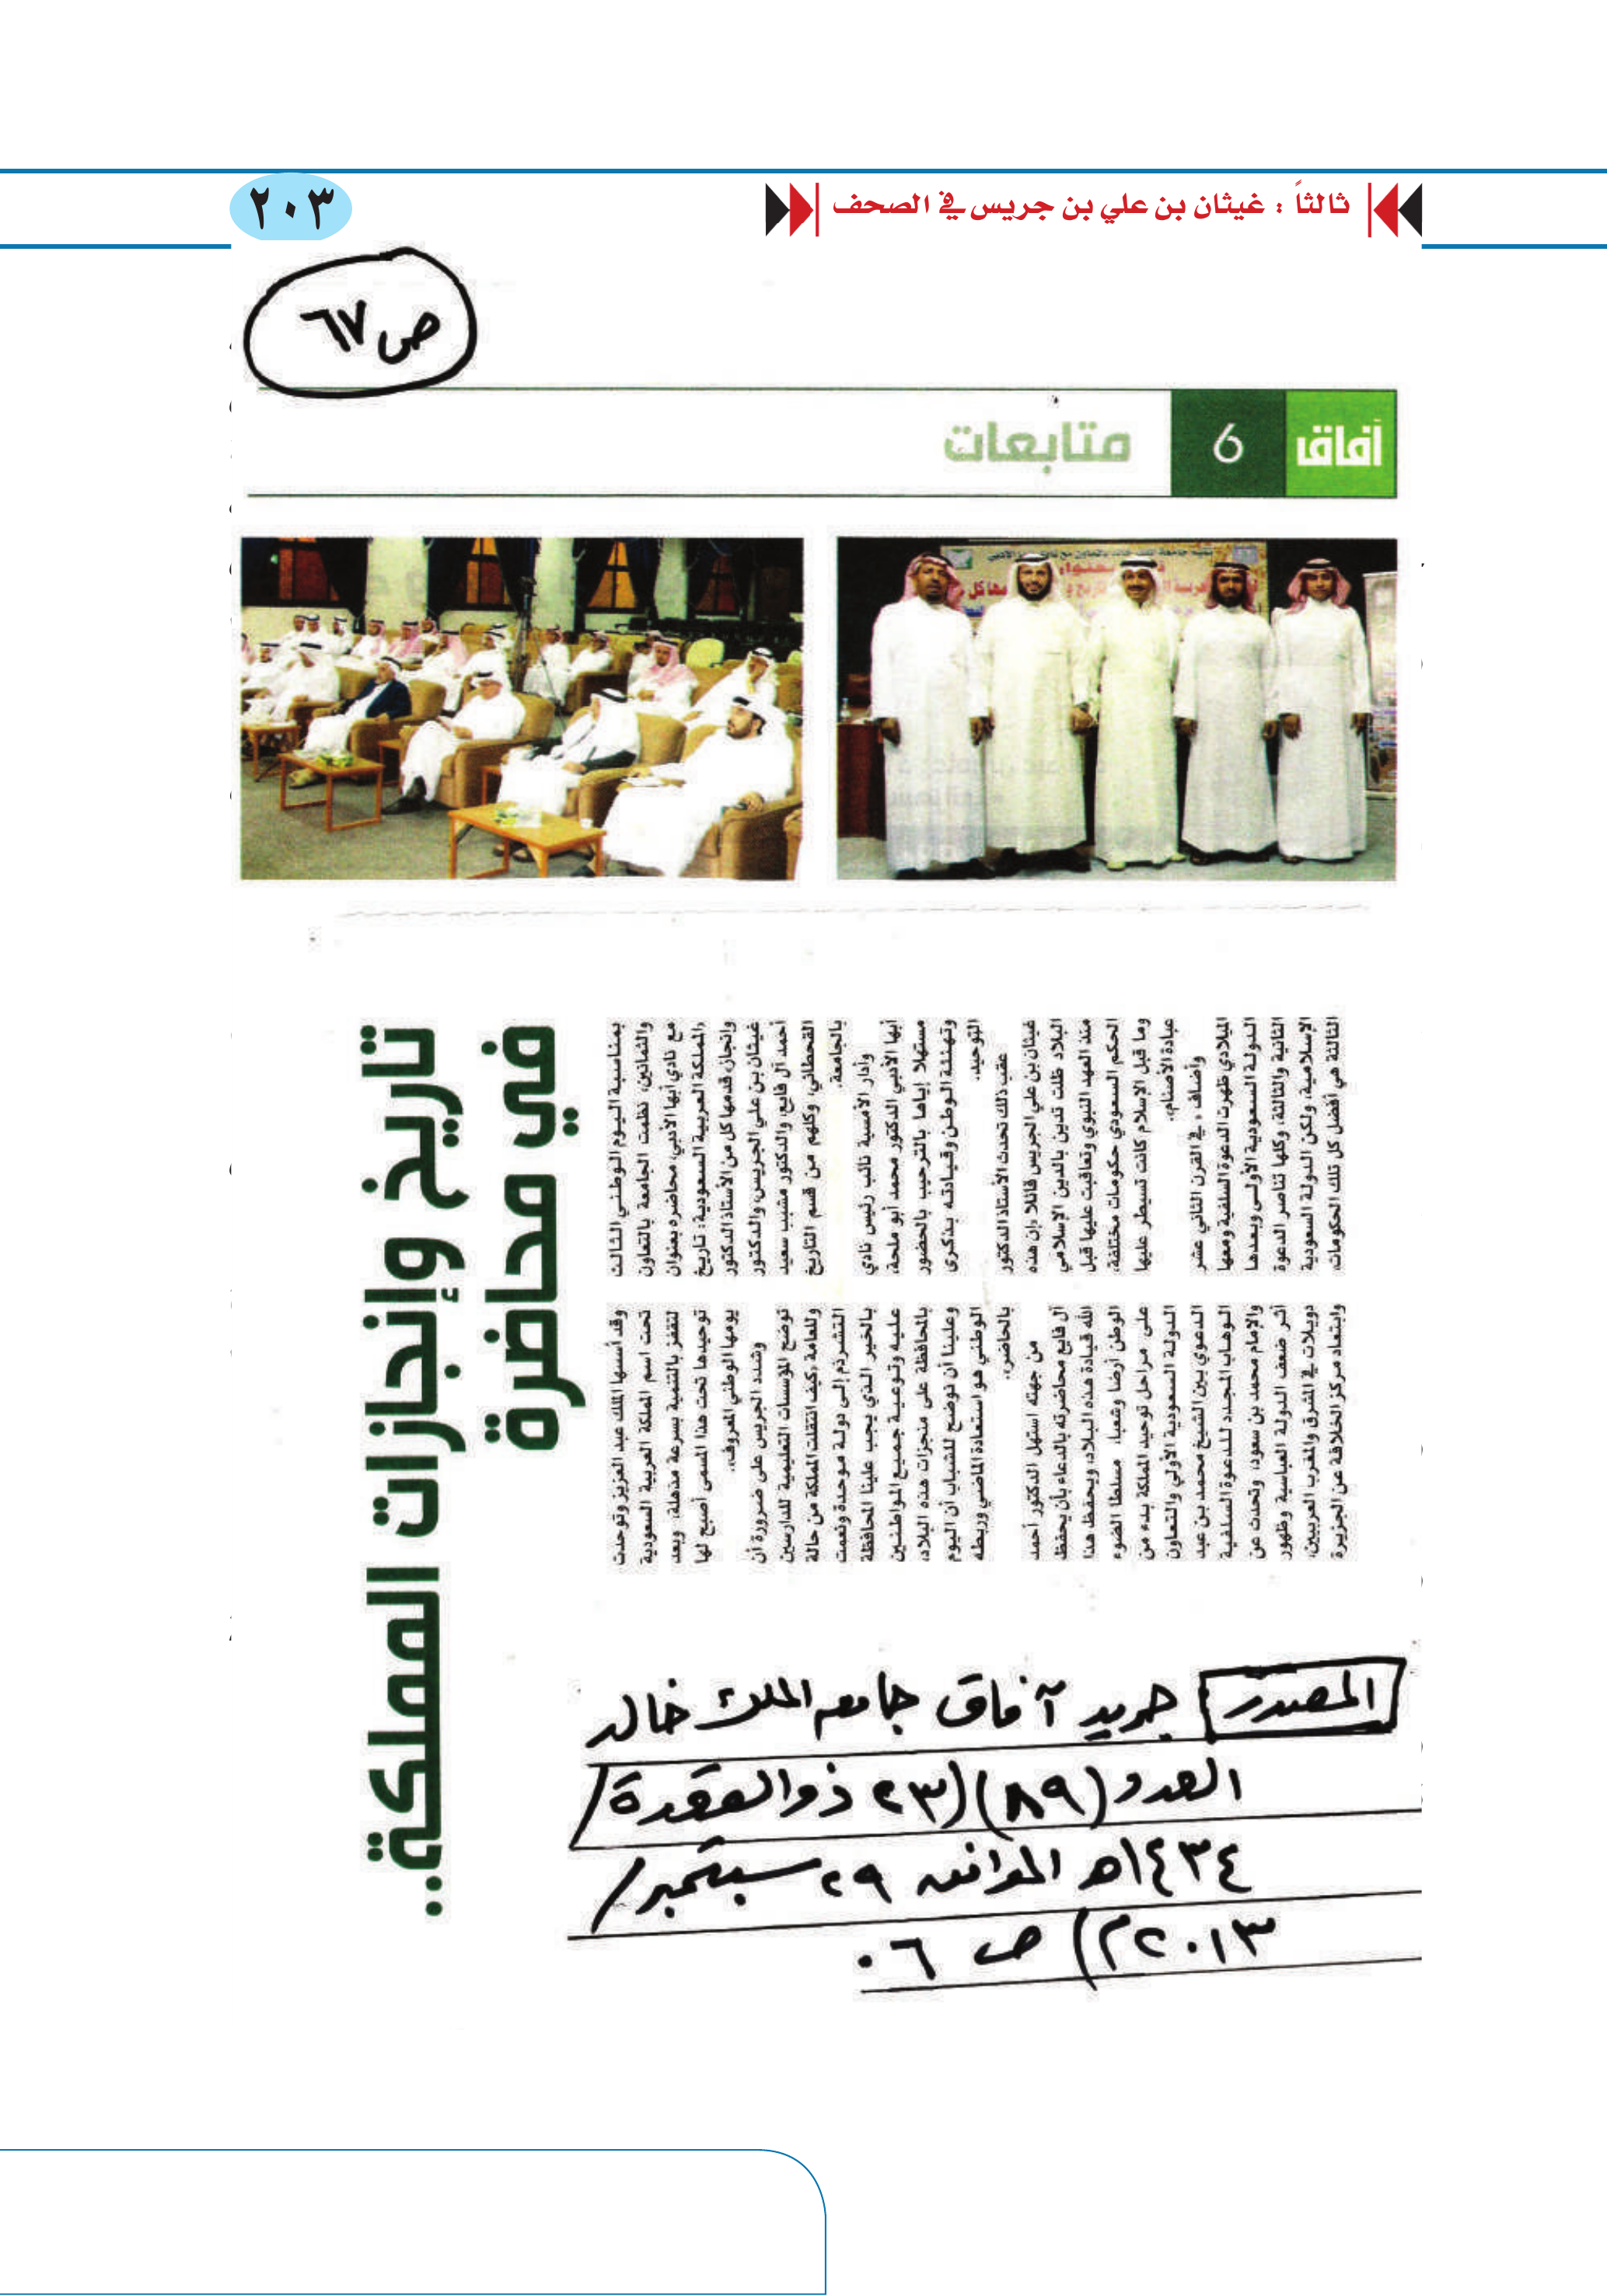 ثالثاً : غيثان بن علي بن جريس في الصحف
٢٠٣
ص ٦٧
آفاق
6
متابعات
تاريخ وإنجازات المملكة..
في محاضرة
بمناسبة اليوم الوطني الثالث
والثمانين، نظمت الجامعة بالتعاون
مع نادي أبها الأدبي، محاضرة بعنوان
«المملكة العربية السعودية: تاريخ
وإنجاز» قدمها كل من الأستاذ الدكتور
غيثان بن علي الجريس، والدكتور
أحمد آل فايع، والدكتور مشبب سعيد
القحطاني، وكلهم من قسم التاريخ
بالجامعة.
وأدار الأمسية نائب رئيس نادي
أبها الأدبي الدكتور محمد أبو ملحة،
مستهلا إياها بالترحيب بالحضور
وتهنئة الوطن وقيادته بذكرى
التوحيد.
عقب ذلك تحدث الأستاذ الدكتور
غيثان بن علي الجريس قائلا «إن هذه
البلاد ظلت تدين بالدين الإسلامي
منذ العهد النبوي وتعاقبت عليها قبل
الحكم السعودي حكومات مختلفة،
وما قبل الإسلام كانت تسيطر عليها
عبادة الأصنام».
وأضاف «في القرن الثاني عشر
الميلادي ظهرت الدعوة السلفية ومعها
الدولة السعودية الأولى وبعدها
الثانية والثالثة، وكلها تناصر الدعوة
الإسلامية، ولكن الدولة السعودية
الثالثة هي أفضل كل تلك الحكومات،
وقد أسسها الملك عبد العزيز وتوحدت
تحت اسم المملكة العربية السعودية
لتقفز بالتنمية بسرعة مذهلة، وبعد
توحيدها تحت هذا المسمى أصبح لها
يومها الوطني المعروف».
وشدد الجريس على ضرورة أن
توضح المؤسسات التعليمية للدارسين
وللعامة «كيف انتقلت المملكة من حالة
التشرذم إلى دولة موحدة ونعمت
بالخير الذي يجب علينا المحافظة
عليه وتوعية جميع المواطنين
بالمحافظة على منجزات هذه البلاد،
وعلينا أن نوضح للشباب أن اليوم
الوطني هو استعادة الماضي وربطه
بالحاضر».
من جهته استهل الدكتور أحمد
آل فايع محاضرته بالدعاء بأن يحفظ
الله قيادة هذه البلاد، ويحفظ هذا
الوطن أرضا وشعبا، مسلطا الضوء
على مراحل توحيد المملكة بدء من
الدولة السعودية الأولي والتعاون
الدعوي بين الشيخ محمد بن عبد
الوهاب المجدد للدعوة السلفية
والإمام محمد بن سعود، وتحدث عن
أثر ضعف الدولة العباسية وظهور
دويلات في الشرق والمغرب العربيين،
وابتعاد مركز الخلافة عن الجزيرة
المصدر جريد آفاق جامعه الملك خالد
العدد (٨٩) (٢٣ ذو القعدة /
١٤٣٤هـ الموافق ٢٩ سبتمبر /
٢٠١٣م) ص ٠٦